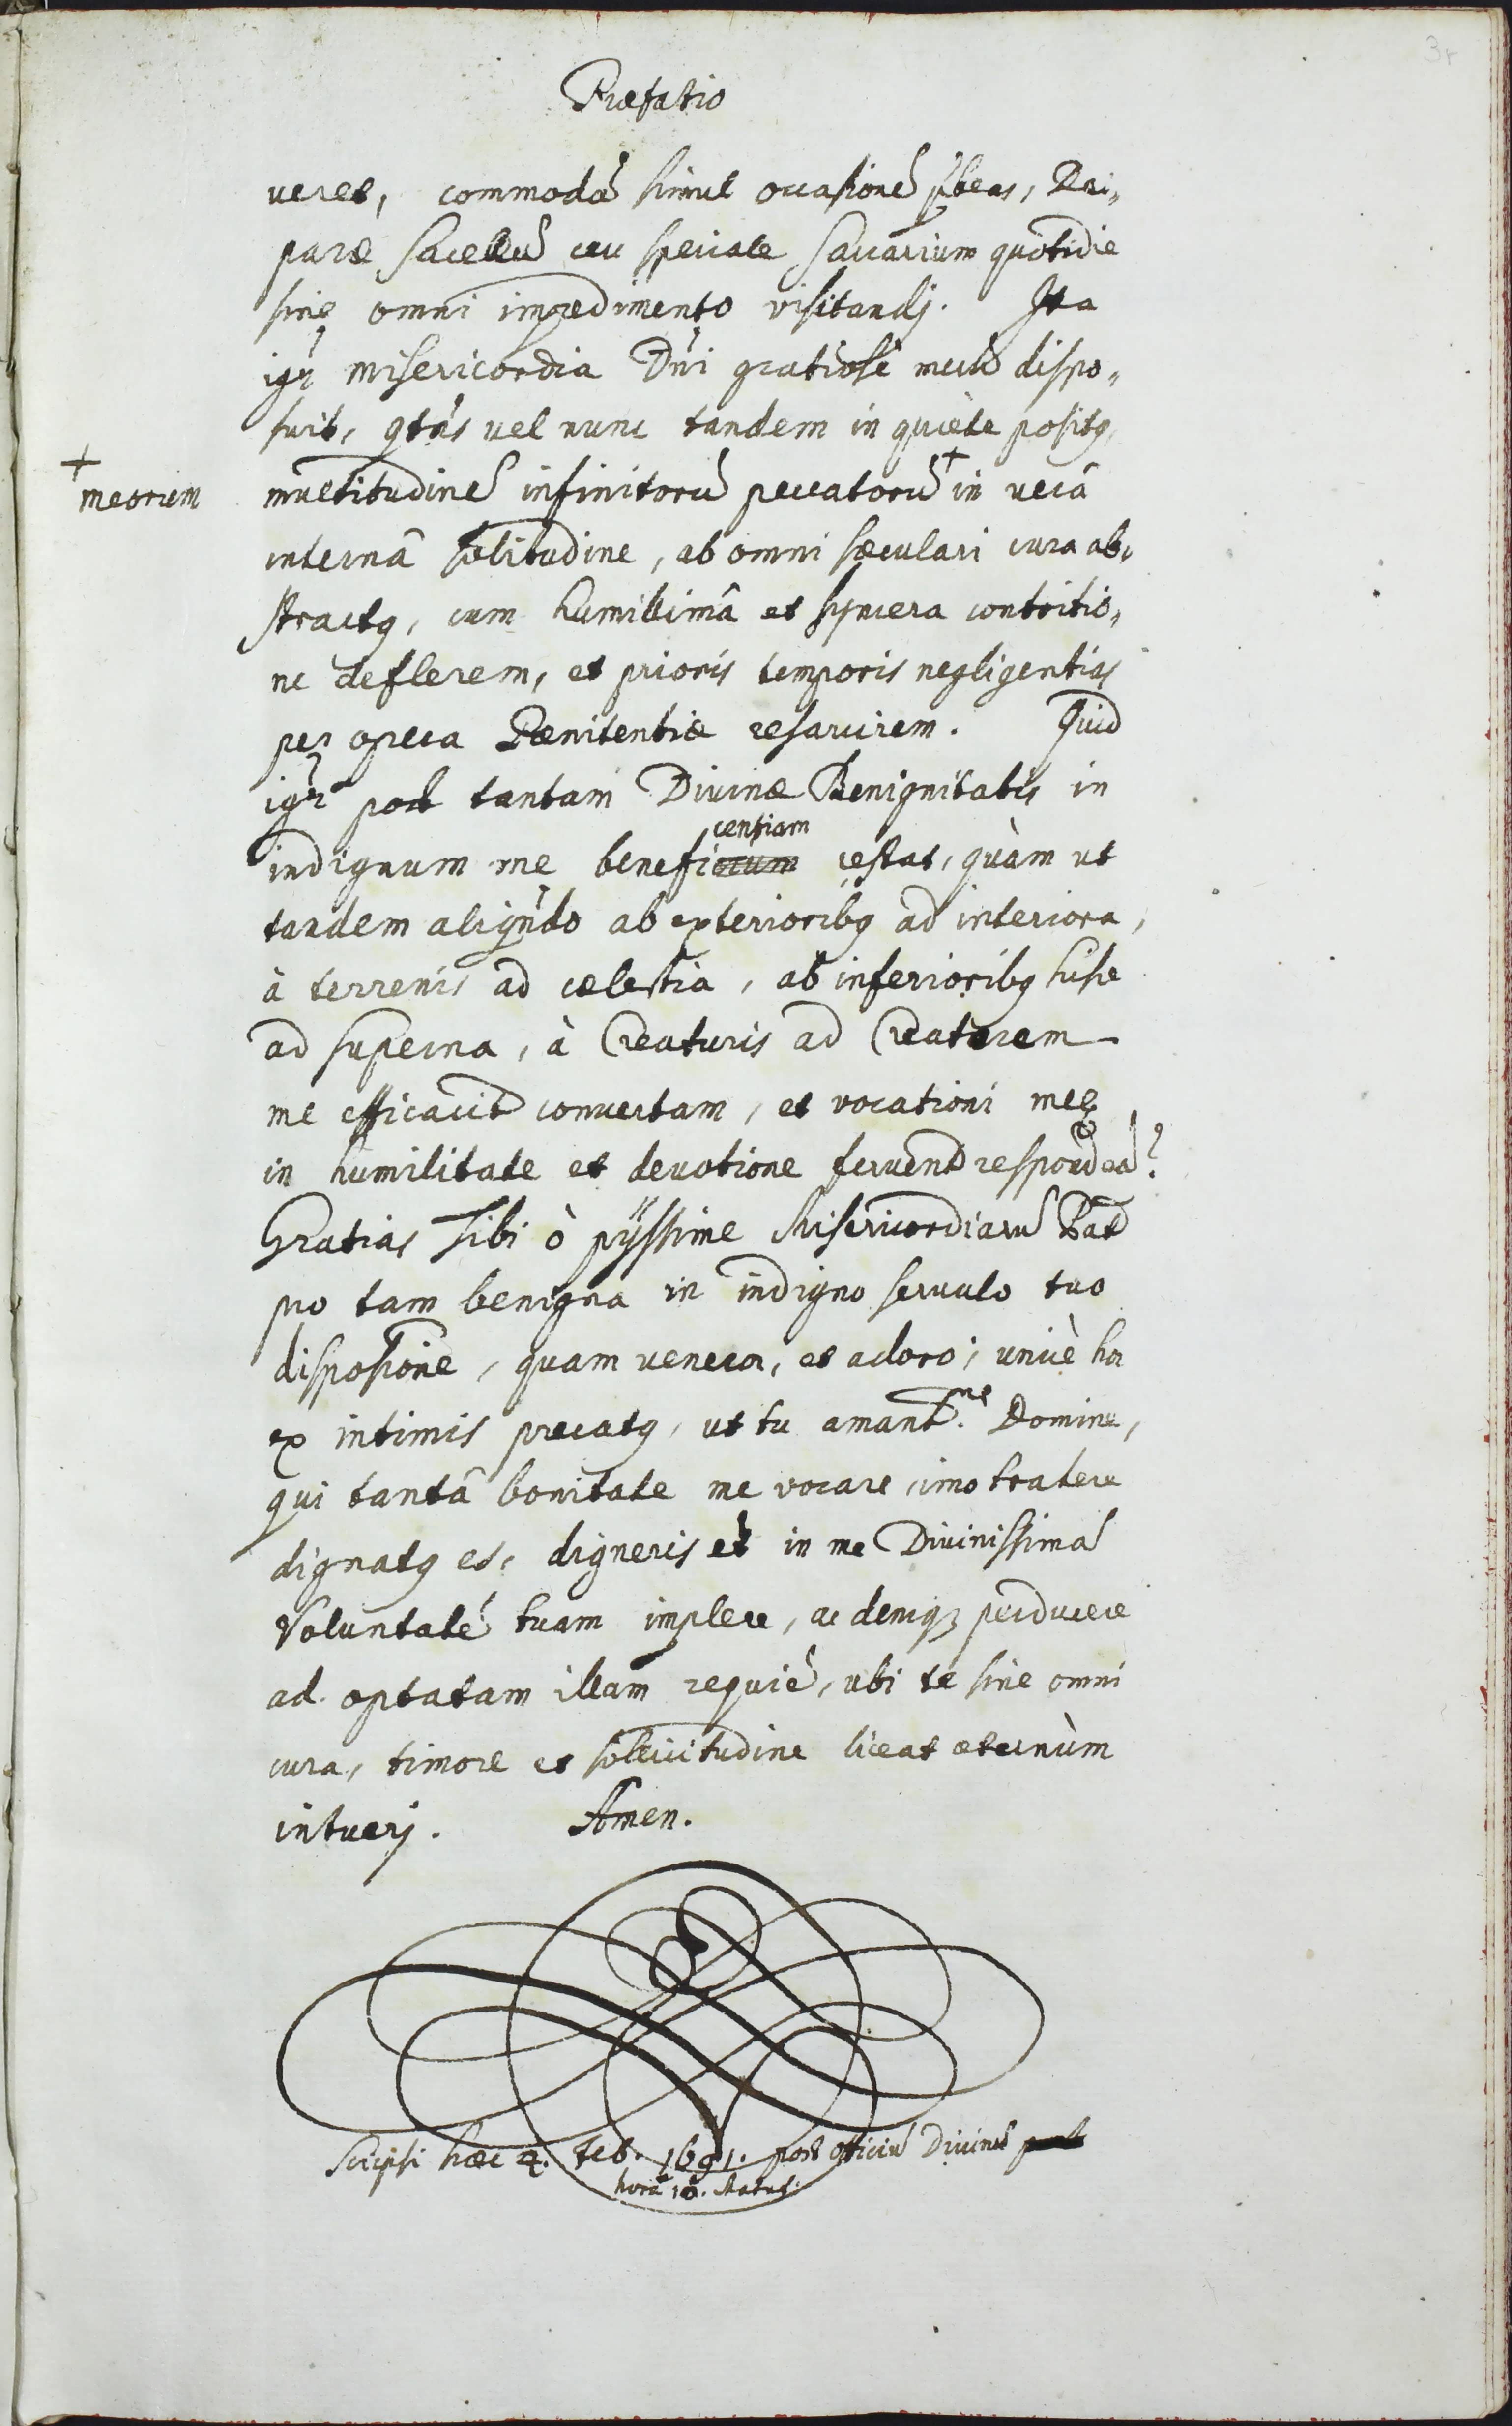 3r
Præfatio
veret, commodā simul occasionē p̄beas, Dei„
paræ Sacellū ceu speciale Sacrarium quotidie
sine omni impedimento visitandj. Ita
igr̃ misericordia Dn̄i gratiose mecū dispo„
suit, qtn̄s vel nunc tandem in quiete positꝯ,
multitudinē infinitorū peccatorū + in verâ
+
meorum
internâ solitudine, ab omni sæculari cura ab„
stractꝯ, cum humillimâ et syncera contritio„
ne deflerem, et prioris temporis negligentias
per opera Pœnitentiæ resarcirem. Quid
igr̃ post tantam Divinæ Benignitatis in
indignum me beneficcentiam restat, quàm ut
tandem aliqn̄do ab exterioribꝯ ad interiora,
à terrenis ad cælestia, ab inferioribꝯ hisce
ad superna, à Creaturis ad Creatorem
me efficacit̃ convertam, et vocationi meę
in humilitate et devotione fervent̃ respondeā?
Gratias Tibi ò pijssime Misericordiarū Pat̃
pro tam benigna in indigno servulo tuo
disposi̅one, quam veneror, et adoro; unicè hoc
ex intimis precatꝯ, ut tu amant.me Domine,
qui tantâ bonitate me vocare, imo trahere
dignatꝯ es, digneris et in me Divinissimā
Voluntatē tuam implere, ac deniqꝫ perducere
ad optatam illam requiē, ubi te sine omni
cura, timore et sollicitudine liceat æternùm
intuerj. Amen.
Scripsi hæc 4. Feb. 1691. post officiū Divinū
horâ 10. Matut: